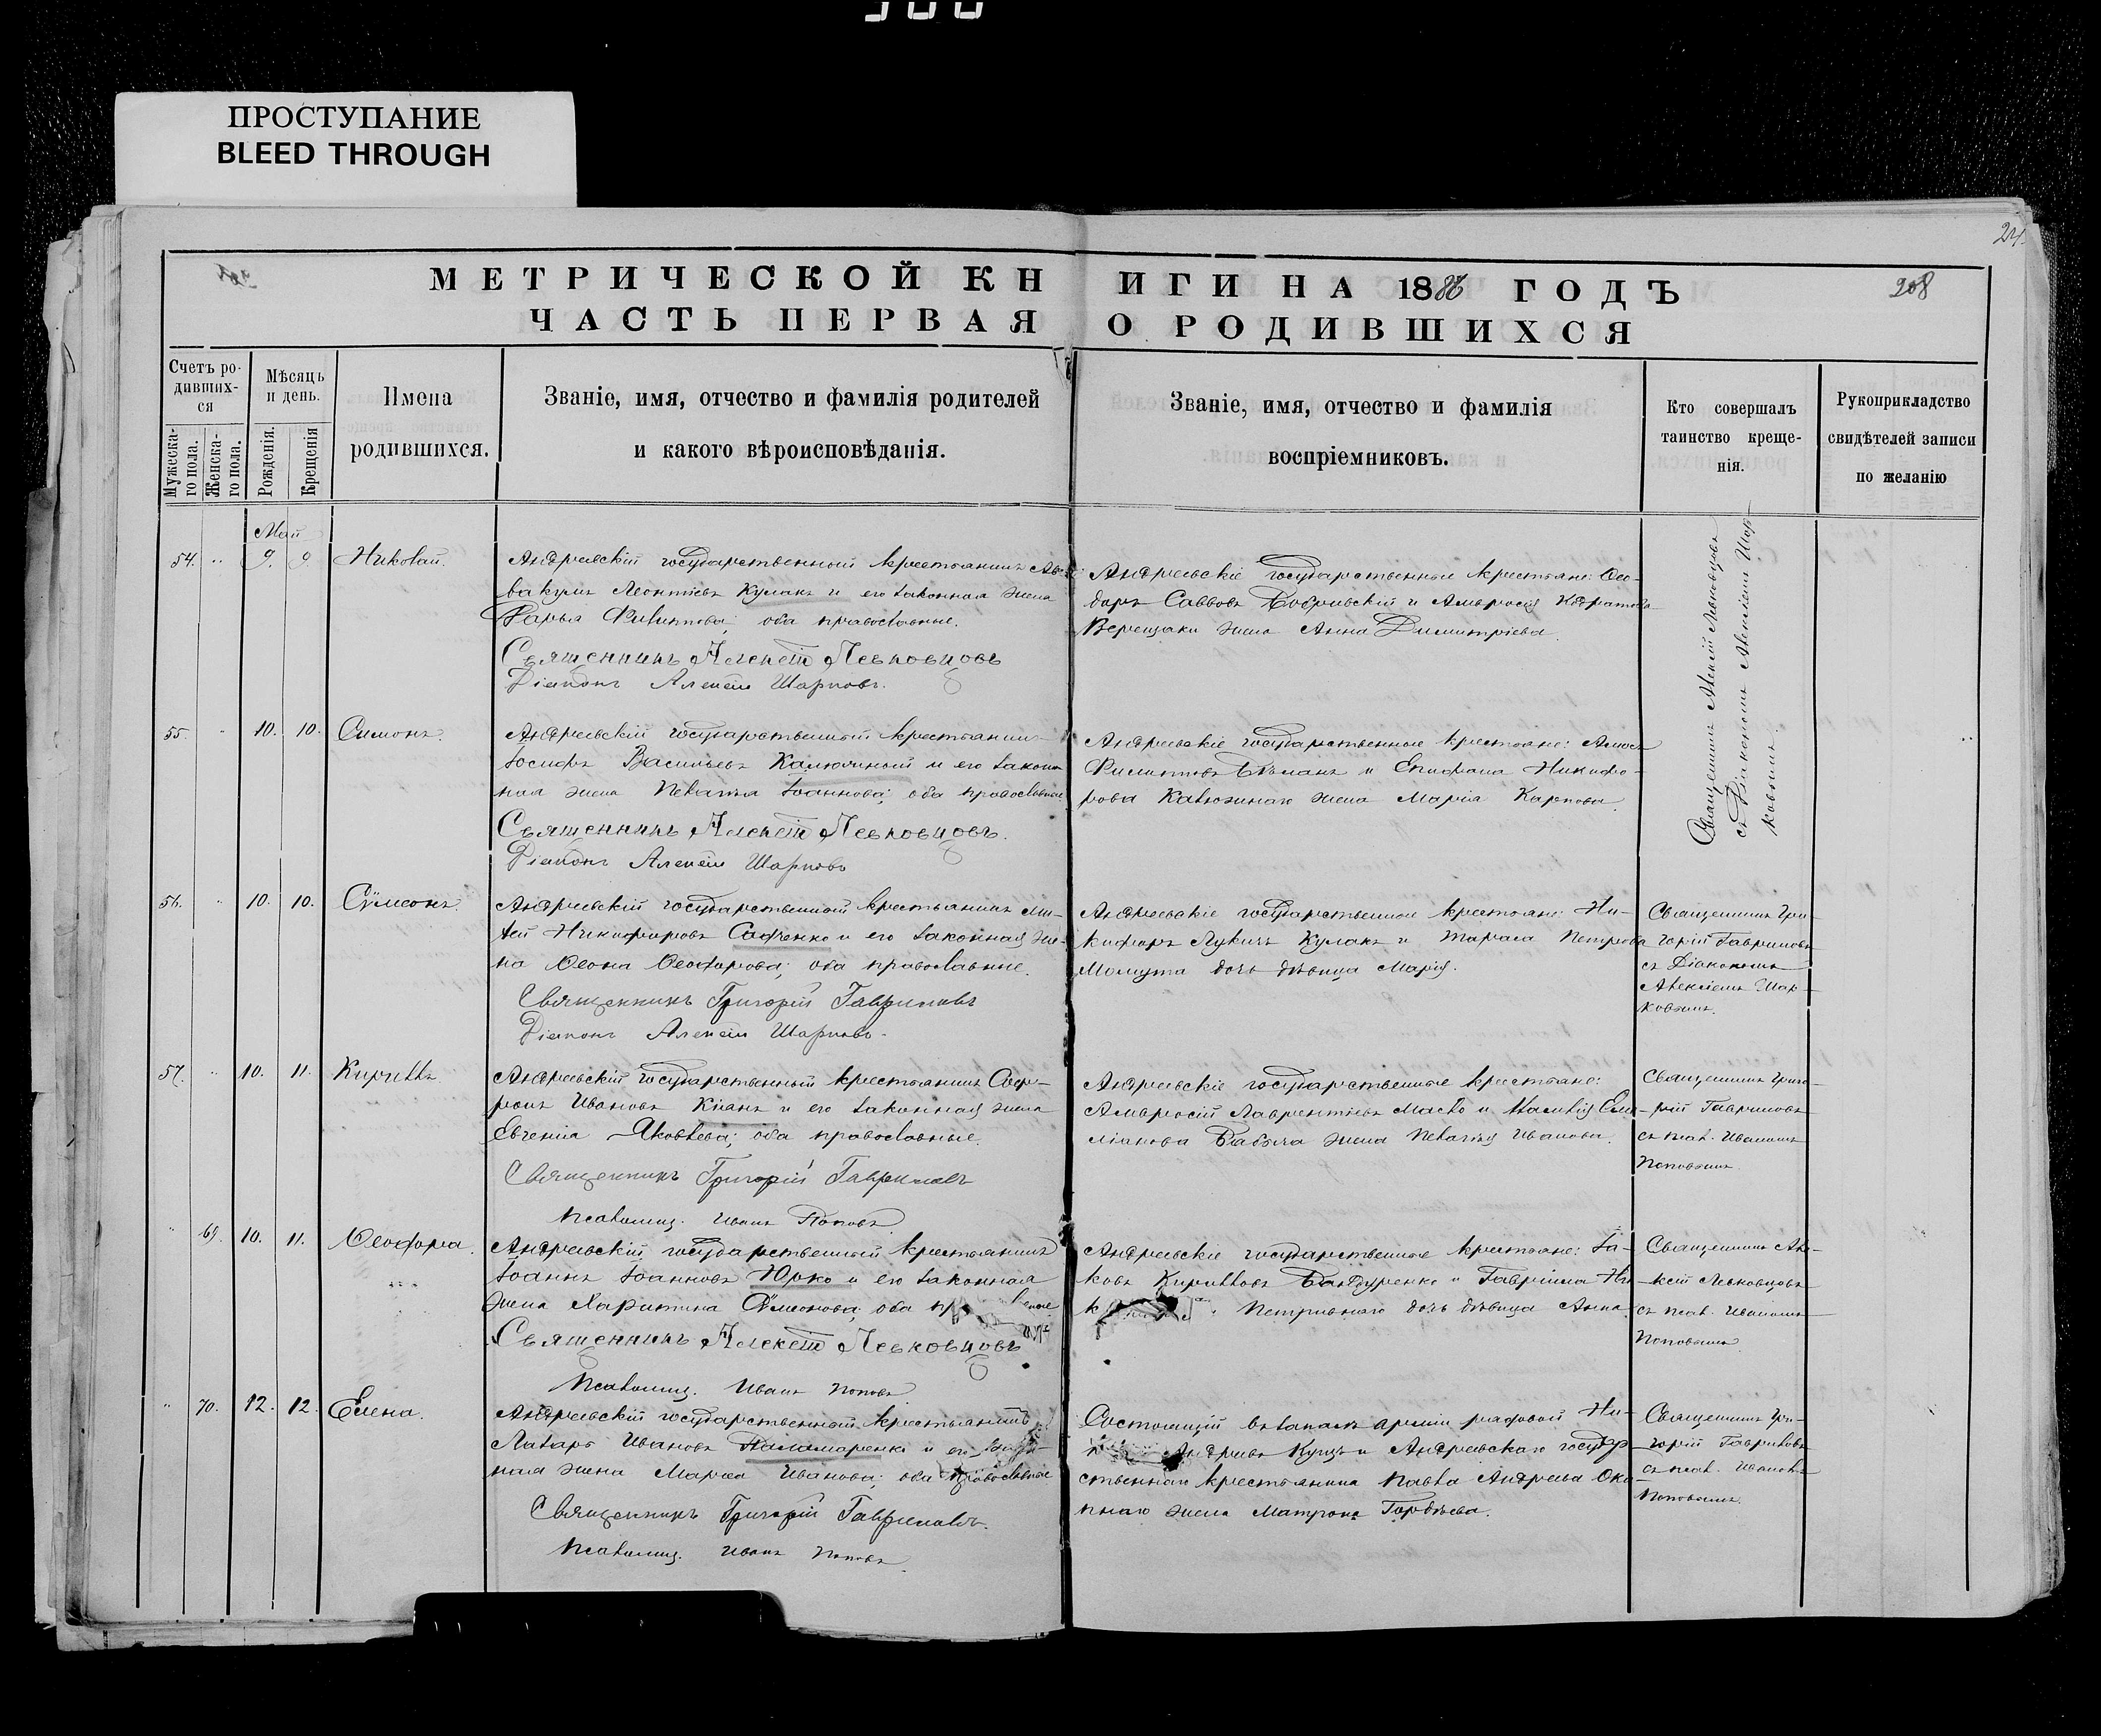 ПРОСТУПАНИЕ
BLEED THROUGH
24
МЕТРИЧЕСКОЙ КНИГИ НА 1886 ГОДЪ
208
ЧАСТЬ ПЕРВАЯ О РОДИВШИХСЯ
Счетъ родившихся
Мужескаго пола.
Женскаго пола.
Мѣсяцъ и день.
Рожденія.
Крещенія
Имена
родившихся.
Званіе, имя, отчество и фамилія родителей
и какого вѣроисповѣданія.
Званіе, имя, отчество и фамилія
воспріемниковъ.
Кто совершалъ
таинство креще-
нія.
Рукоприкладство
свидѣтелей записи
по желанію
Май
54. 9. 9. Николай.
Андреевскій государственный крестьянинъ Ав-
вакумъ Леонтіевъ Кулакъ и его законная жена
Дарья Филиппова; оба православные.
Священникъ Алексѣй Левковцовъ
Діаконъ Алексѣй Шарковъ.
Андреевскіе государственные крестьяне: Ѳео-
доръ Саввовъ и Амвросія
Верещаки жена Анна Димитріева.
Священникъ Алексій Левковцовъ
съ Діакономъ Алексіемъ Шар-
ковымъ.
55. 10. 10. Симонъ.
Андреевскій государственный крестьянинъ
Іосифъ Васильевъ и его закон-
ная жена Пелагія Іоаннова; оба православные
Священникъ Алексѣй Левковцовъ.
Діаконъ Алексѣй Шарковъ
Андреевскіе государственные крестьяне: Амосъ
Филипповъ и Епифана Никифо-
рова жена Марія Карпова.
56. 10. 10. Сѵмеонъ.
Андреевскій государственный крестьянинъ
Никифоровъ Савченко и его законная же-
на Ѳеодорова; оба православные.
Священникъ Григорій Гавриловъ
Діаконъ Алексѣй Шарковъ.
Андреевскіе государственные крестьяне: Ни-
кифоръ Лукичъ Кулакъ и Тараса Петрова
дочь дѣвица Марія.
Священникъ Гри-
горій Гавриловъ
съ Діакономъ
Алексіемъ Шар-
ковымъ.
57. 10. 11. Кириллъ
Андреевскій государственный крестьянинъ Соф-
ронъ Ивановъ Кіанъ и его законная жена
Евгенія Яковлева; оба православные.
Священникъ Григорій Гавриловъ
Псаломщ. Иванъ Поповъ
Андреевскіе государственные крестьяне:
Амвросій Лаврентіевъ Масло и
жена Пелагія Иванова.
Священникъ Григо-
рій Гавриловъ
съ псал. Иваномъ
Поповымъ.
69. 10. 11. Ѳеодора.
Андреевскій государственный крестьянинъ
Іоаннъ Іоанновъ Юрко и его законная
жена Харитина Сѵмеонова, оба
Священникъ Алексѣй Левковцовъ
Псаломщ. Иванъ Поповъ
Андреевскіе государственные крестьяне: Іа-
ковъ Кирилловъ Бандуренко и Гавріила
дочь дѣвица Анна.
Священникъ Але-
ксѣй Левковцовъ
съ псал. Иваномъ
Поповымъ
70. 12. 12. Елена.
Андреевскій государственный крестьянинъ
Лазарь Ивановъ Паламаренко и его закон-
ная жена Марѳа Иванова; оба православные
Священникъ Григорій Гавриловъ.
Псаломщ. Иванъ Поповъ.
Состоящій въ запасѣ арміи рядовой
Андреевъ Куцъ и Андреевскаго государ-
ственнаго крестьянина Павла Андреева
жена Матрона Гордѣева.
Священникъ Гри-
горій Гавриловъ
съ псал. Иваномъ
Поповымъ.